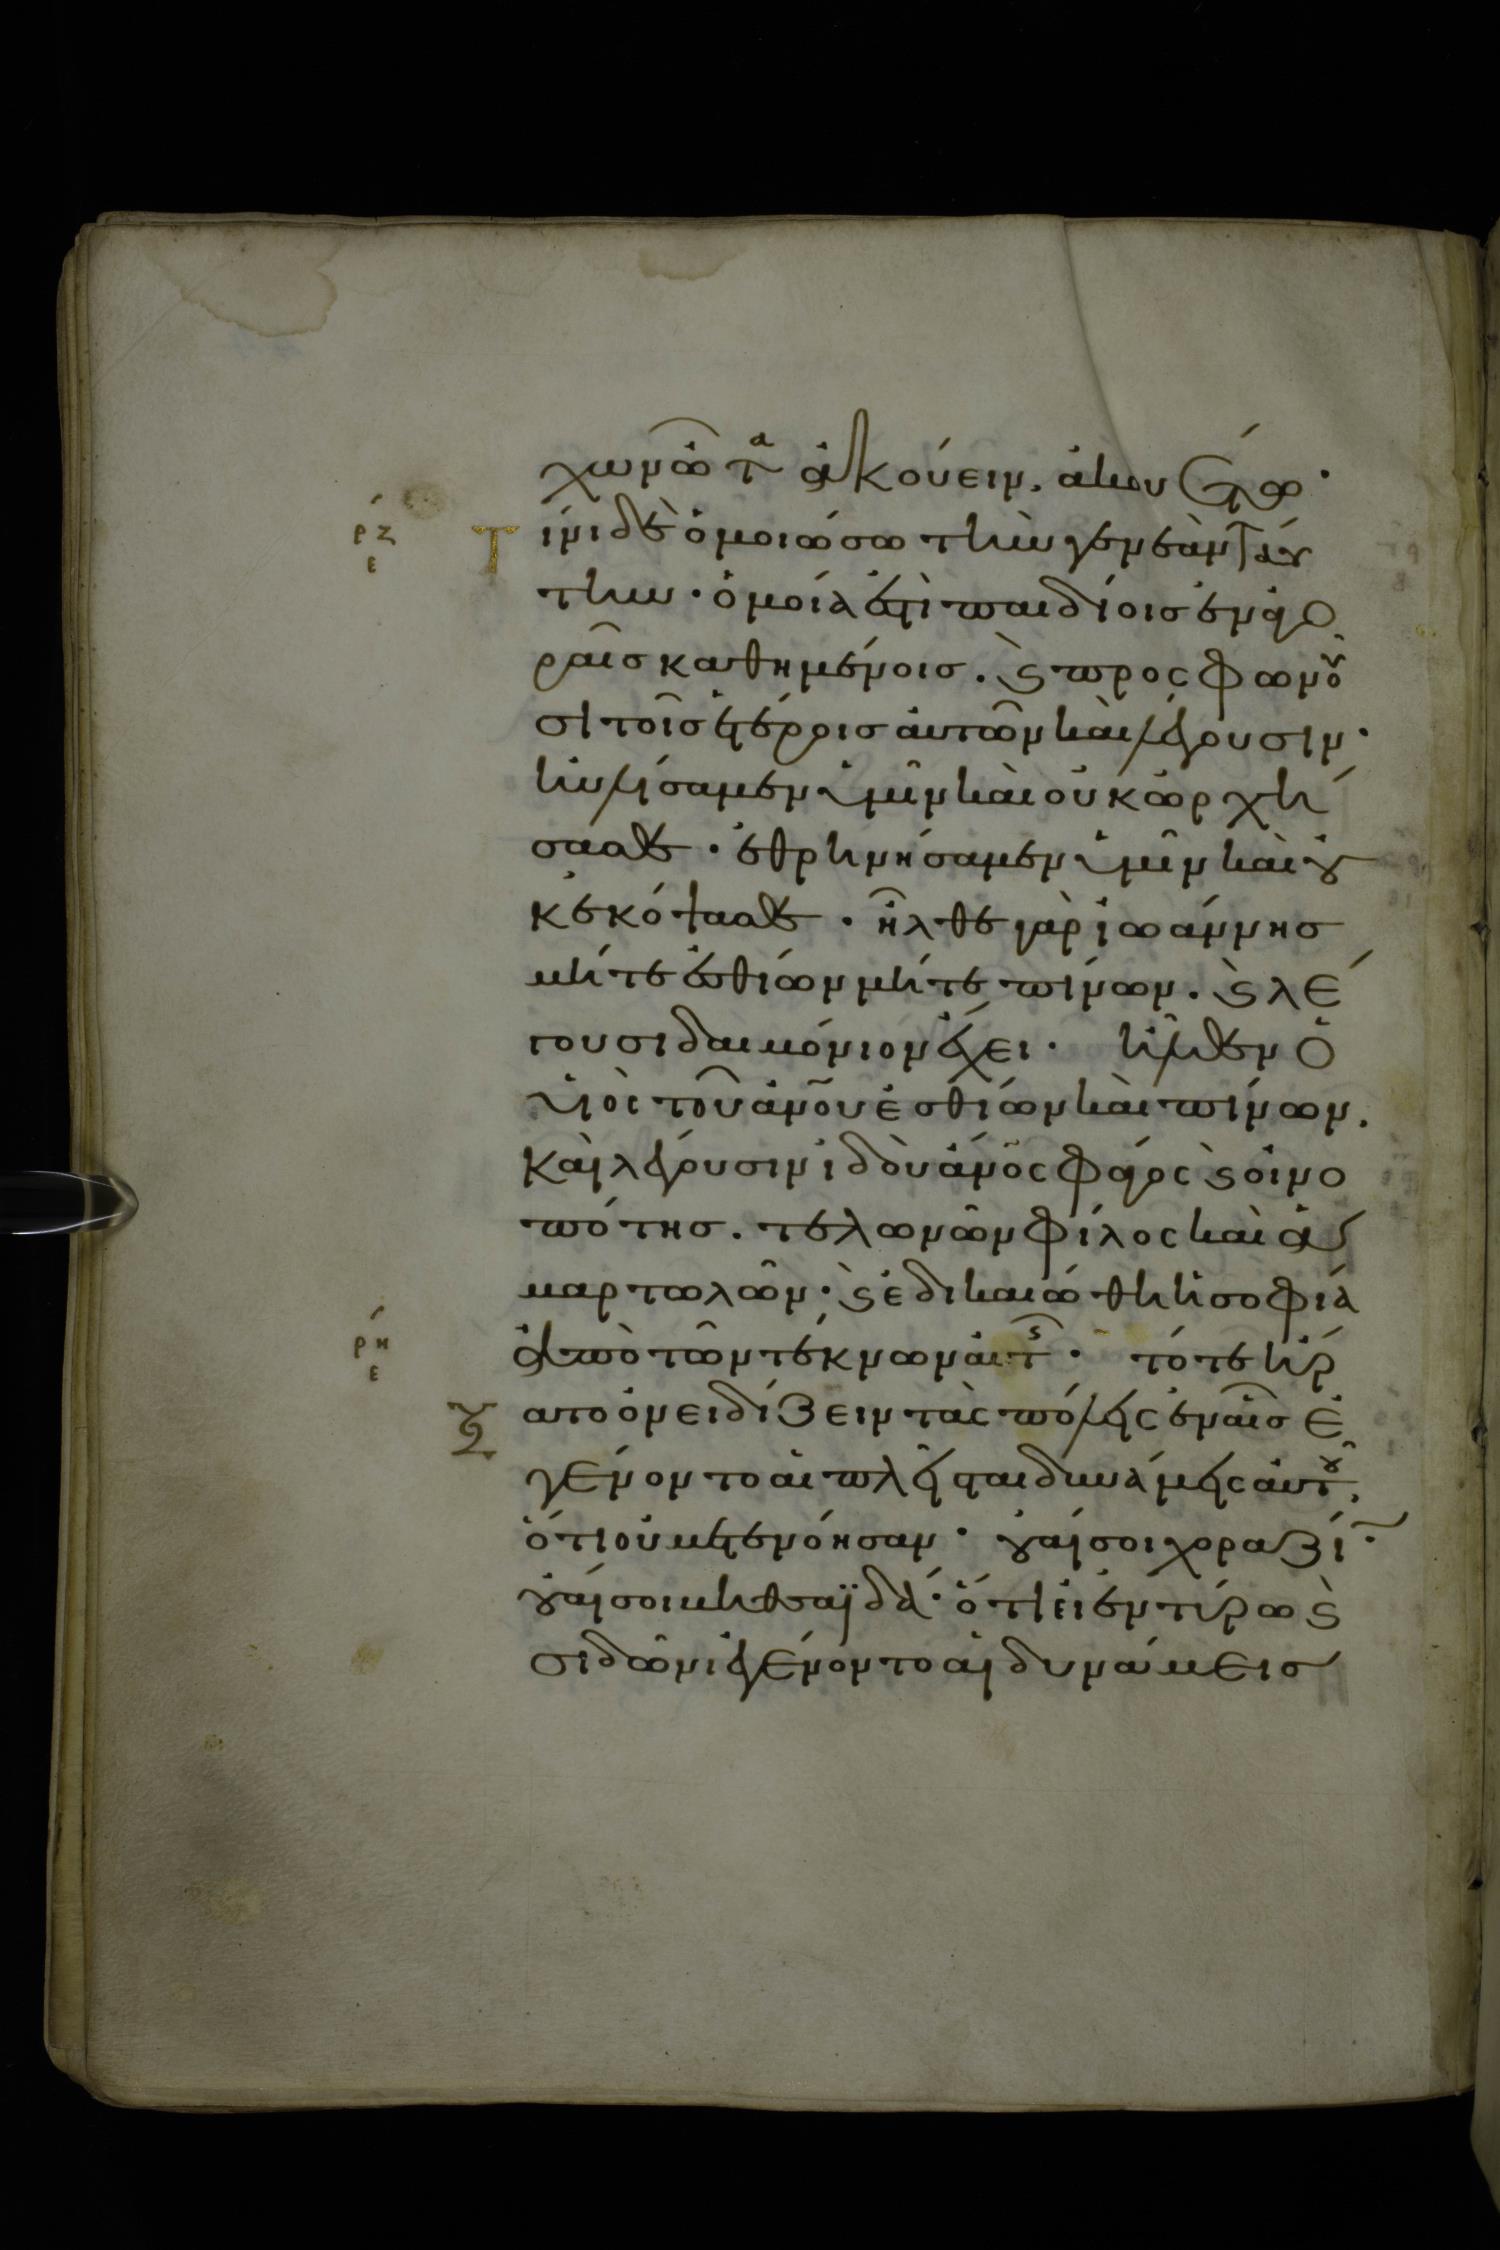 χων ὦτα ἀκούειν, ἀκουέτω·
ρζ ε Τίνι δὲ ὁμοιώσω τὴν γενεὰν ταύ
την· ὁμοία ἐστὶ παιδίοις ἐν ἀγο
ραῖς καθημένοις. ϛ προσφωνοῦ
σι τοῖς ἑτέροις αὐτῶν καὶ λέγουσιν·
ηὐλήσαμεν ὑμῖν καὶ οὐκ ὠρχή
σασθε· ἐθρηνήσαμεν ὑμῖν καὶ οὐ
κ ἐκόψασθε· ἦλθε γὰρ ἰωάννησ
μήτε ἐσθίων μήτε πίνων. ϛ λέ
γουσι δαιμόνιον ἔχει· ἦλθεν ὁ
υἱὸς τοῦ ἀνου ἐσθίων καὶ πίνων.
καὶ λέγουσιν ἰδοὺ ἀνος φάγος ϛ οἰνο
πότης. τελωνῶν φίλος καὶ ἁ
μαρτωλῶν· ϛ ἐδικαιώθη ἡ σοφία
ρη ε ἀπὸ τῶν τέκνων αὐτῆς· τότε ἤρ
ξατο ὀνειδίζειν τὰς πόλεις ἐν αἷς ἐ
γένοντο αἱ πλεῖσται δυνάμεις αὐτοῦ,
ὅτι οὐ μετενόησαν· οὐαί σοι χοραζίν·
οὐαί σοι βηθσαϊδά· ὅτι εἰ ἐν τύρω ϛ
σιδῶνι ἐγένοντο αἱ δυνάμεις